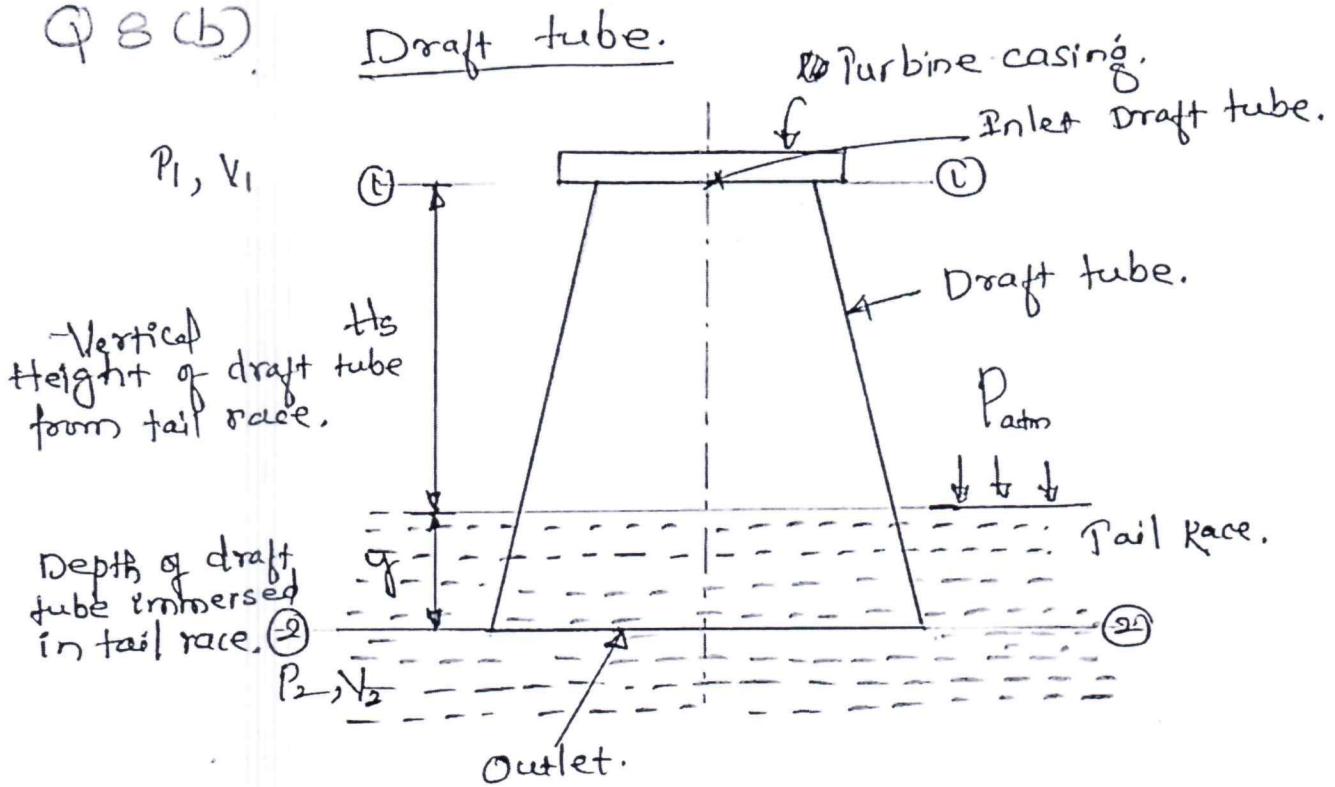 Q 8 (b).
Draft tube.
Turbine casing.
Inlet Draft tube.
P1, V1
1
1
Draft tube.
Hs
Vertical
Height of draft tube
from tail race.
Patm
Tail Race.
y
Depth of draft
tube immersed
in tail race.
2
2
P2, V2
Outlet.